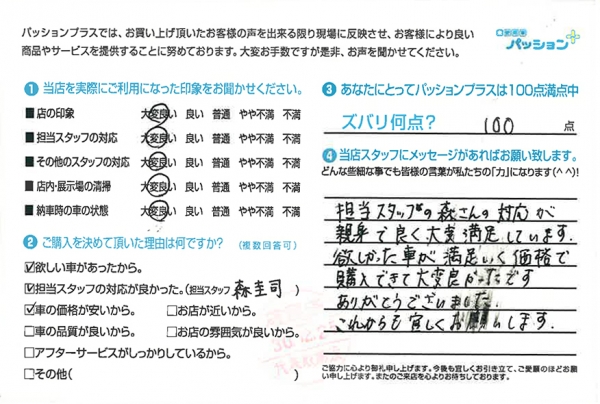 パッションプラスでは、お買い上げ頂いたお客様の声を出来る限り現場に反映させ、お客様により良い
商品やサービスを提供することに努めております。大変お手数ですが是非、お声を聞かせてください。
パッション
❶ 当店を実際にご利用になった印象をお聞かせください。
■店の印象 大変良い 良い 普通 やや不満 不満
■担当スタッフの対応 大変良い 良い 普通 やや不満 不満
■その他のスタッフの対応 大変良い 良い 普通 やや不満 不満
■店内・展示場の清掃 大変良い 良い 普通 やや不満 不満
■納車時の車の状態 大変良い 良い 普通 やや不満 不満
❷ ご購入を決めて頂いた理由は何ですか? (複数回答可)
☑欲しい車があったから。
☑担当スタッフの対応が良かった。(担当スタッフ 森圭司 )
☑車の価格が安いから。 □お店が近いから。
□車の品質が良いから。 □お店の雰囲気が良いから。
□アフターサービスがしっかりしているから。
□その他( )
❸ あなたにとってパッションプラスは100点満点中
ズバリ何点? 100 点
❹ 当店スタッフにメッセージがあればお願い致します。
どんな些細な事でも皆様の言葉が私たちの「力」になります(^^)!
担当スタッフの森さんの対応が
親身で良く大変満足しています.
欲しかった車が満足いく価格で
購入できて大変良かったです
ありがとうございました.
これからも宜しくお願いします.
ご協力に心より御礼申し上げます。今後も宜しくお引き立て、ご愛顧のほどお願
い申し上げます。またのご来店を心よりお待ちしております。